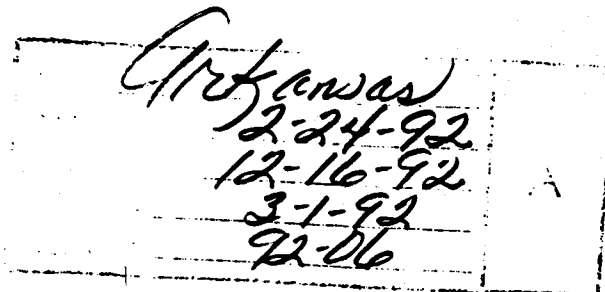 Arkansas
2-24-92
12-16-92
3-1-92
92-06
A